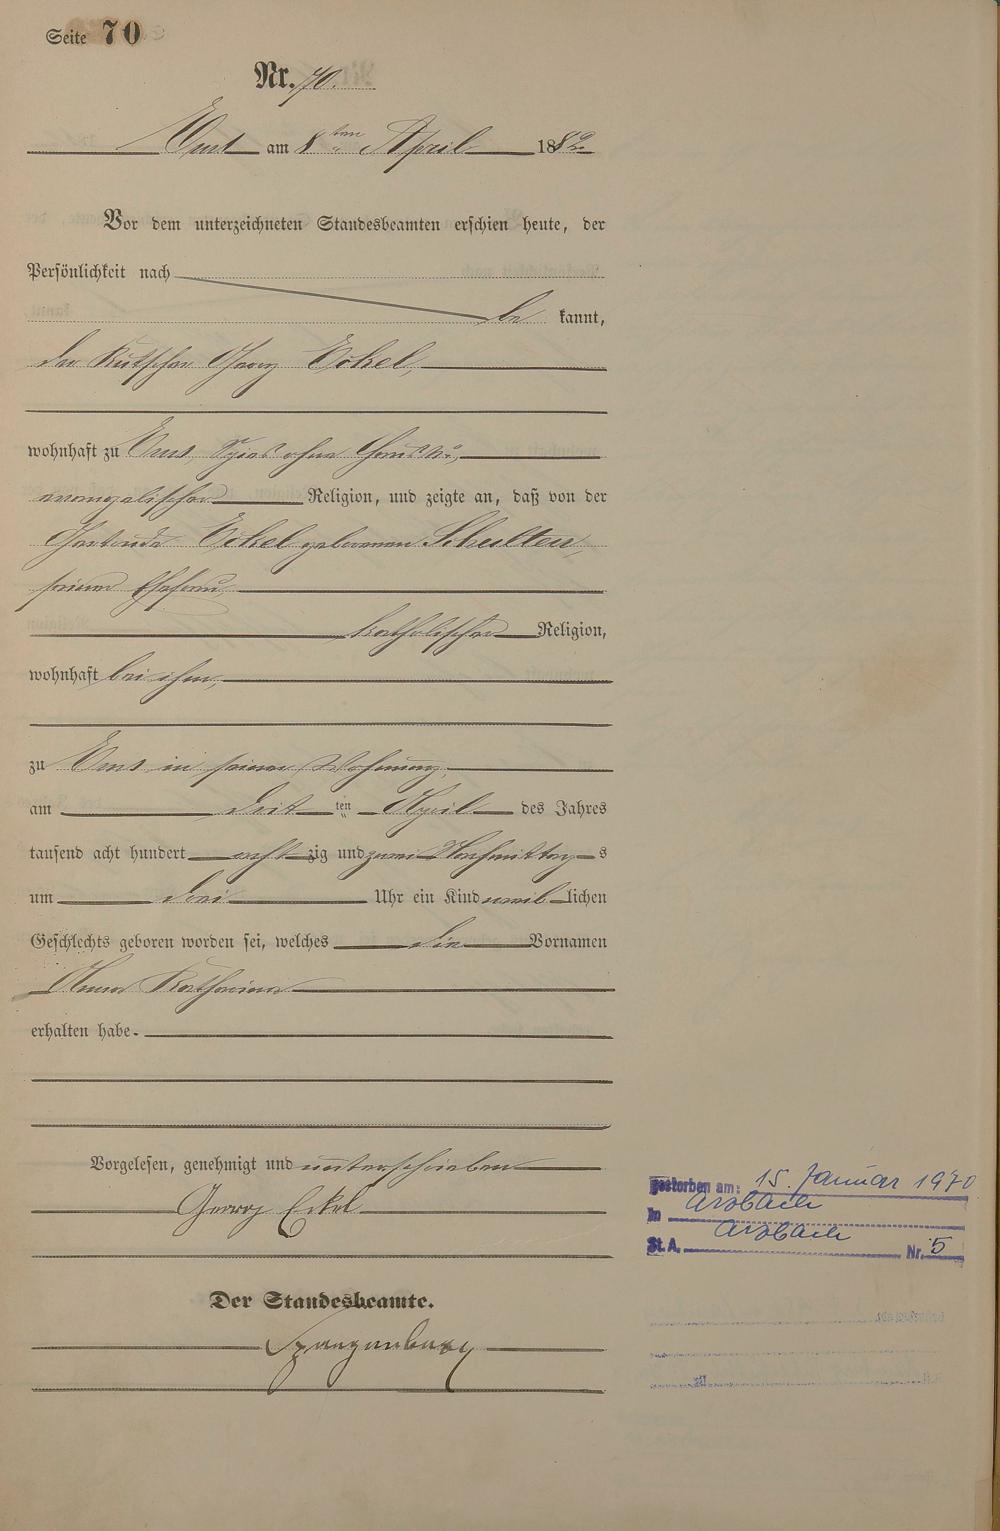 Seite 70
Nr. 70.
Ems am 8ten April 1882.
Vor dem unterzeichneten Standesbeamten erschien heute, der
Persönlichkeit nach
be kannt,
der Kutscher Georg Eckel,
wohnhaft zu Ems, Spies ohne Haus No,
evangelischer Religion, und zeigte an, daß von der
Eckel geborenen Schulten,
seiner Ehefrau,
katholischer Religion,
wohnhaft bei ihm,
zu Ems in seiner Wohnung,
am dritten April des Jahres
tausend acht hundert acht zig und zwei Nachmittags
um drei Uhr ein Kind weib lichen
Geschlechts geboren worden sei, welches die Vornamen
Anna Katharina
erhalten habe.
Vorgelesen, genehmigt und unterschrieben
Georg Eckel
Der Standesbeamte.
Spangenberg
gestorben am: 15. Januar 1970
In Arzbach
St. A. Arzbach Nr. 5